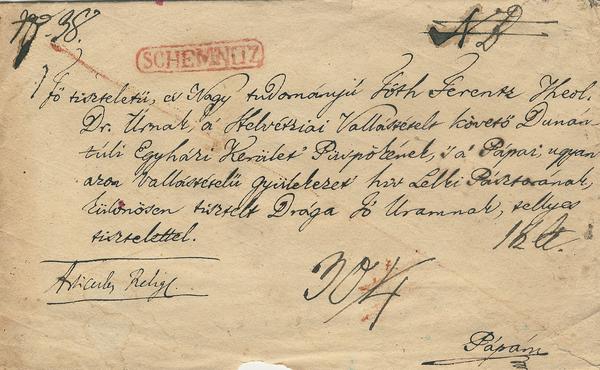 N D
SCHEMNITZ
Fő tiszteletű, és Nagy tudományú Tóth Ferentz Theol.
Dr. Úrnak, á Helvétziai Vallástételt követő Dunán
túli Egyházi Kerület Püspökének, 's á Pápai, ugyan
azon Vallástételű gyülekezet hív Lelki Pásztorának,
különösen tisztelt Drága Fő Uramnak, tellyes
tisztelettel.
Articuli Relig.
30/4
Pápán